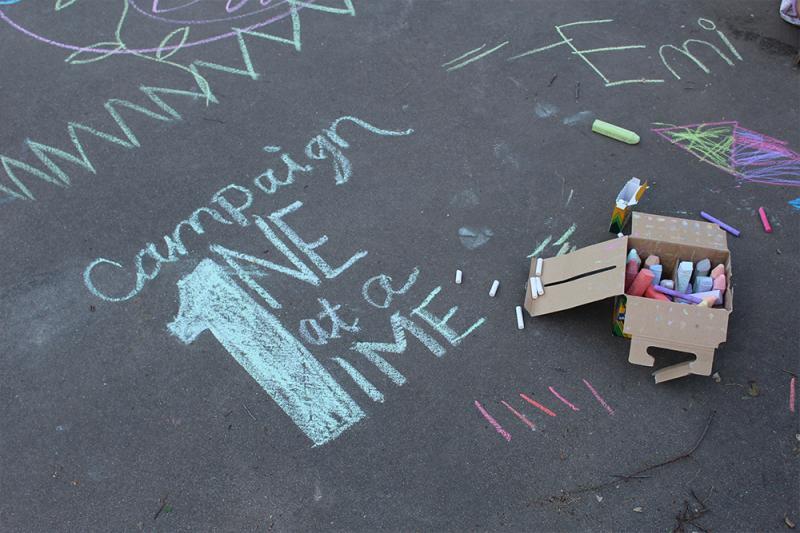 Emi
Campaign
1NE
at a
IME